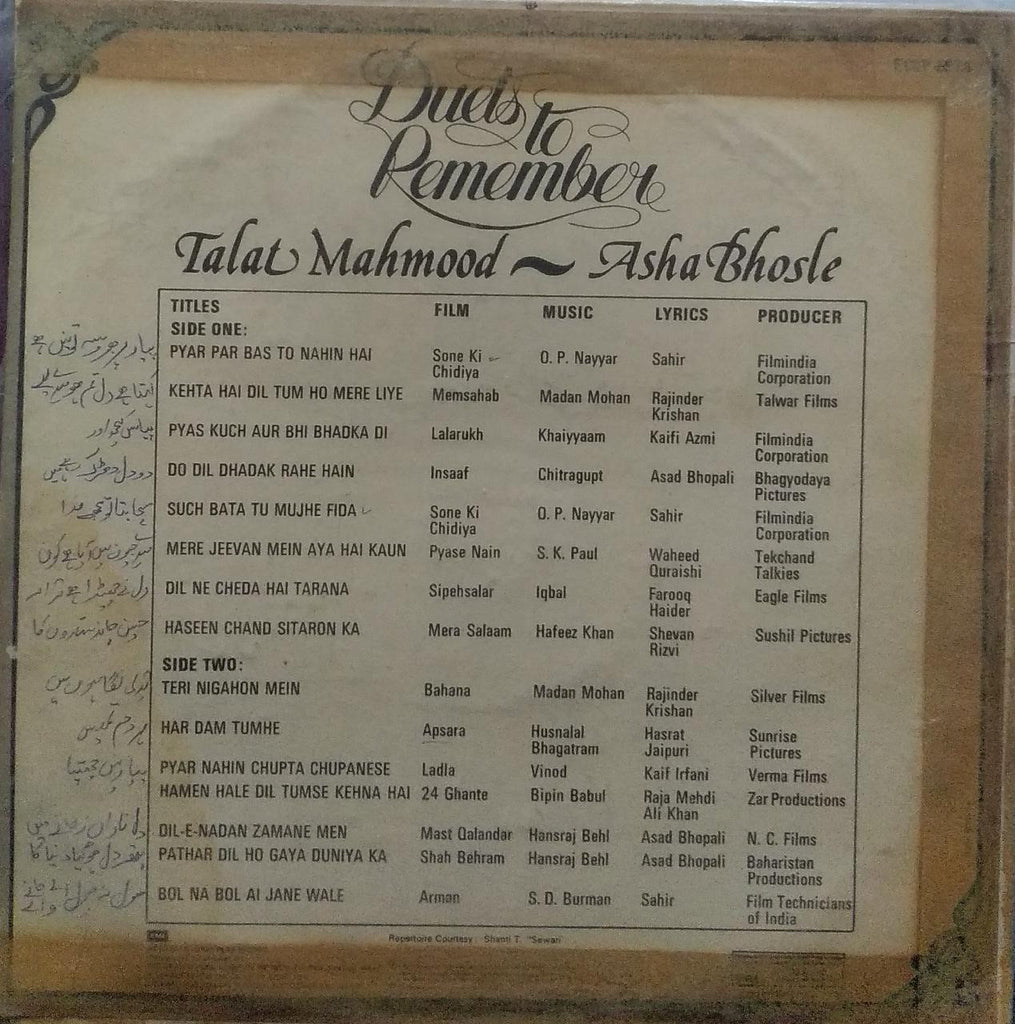 Duets to
Remember
Talat Mahmood ~ Asha Bhosle
TITLES FILM MUSIC LYRICS PRODUCER
SIDE ONE:
PYAR PAR BAS TO NAHIN HAI Sone Ki Chidiya O. P. Nayyar Sahir Filmindia Corporation
KEHTA HAI DIL TUM HO MERE LIYE Memsahab Madan Mohan Rajinder Krishan Talwar Films
PYAS KUCH AUR BHI BHADKA DI Lalarukh Khaiyyaam Kaifi Azmi Filmindia Corporation
DO DIL DHADAK RAHE HAIN Insaaf Chitragupt Asad Bhopali Bhagyodaya Pictures
دو دل دھڑک رہے ہیں
SUCH BATA TU MUJHE FIDA Sone Ki Chidiya O. P. Nayyar Sahir Filmindia Corporation
MERE JEEVAN MEIN AYA HAI KAUN Pyase Nain S. K. Paul Waheed Quraishi Tekchand Talkies
DIL NE CHEDA HAI TARANA Sipehsalar Iqbal Farooq Haider Eagle Films
HASEEN CHAND SITARON KA Mera Salaam Hafeez Khan Shevan Rizvi Sushil Pictures
حسین چاند ستاروں کا
SIDE TWO:
TERI NIGAHON MEIN Bahana Madan Mohan Rajinder Krishan Silver Films
HAR DAM TUMHE Apsara Husnalal Bhagatram Hasrat Jaipuri Sunrise Pictures
ہر دم تمہیں
PYAR NAHIN CHUPTA CHUPANESE Ladla Vinod Kaif Irfani Verma Films
HAMEN HALE DIL TUMSE KEHNA HAI 24 Ghante Bipin Babul Raja Mehdi Ali Khan Zar Productions
DIL-E-NADAN ZAMANE MEN Mast Qalandar Hansraj Behl Asad Bhopali N. C. Films
PATHAR DIL HO GAYA DUNIYA KA Shah Behram Hansraj Behl Asad Bhopali Baharistan Productions
BOL NA BOL AI JANE WALE Arman S. D. Burman Sahir Film Technicians of India
EMI Repertoire Courtesy: Shanti T. "Sewari"